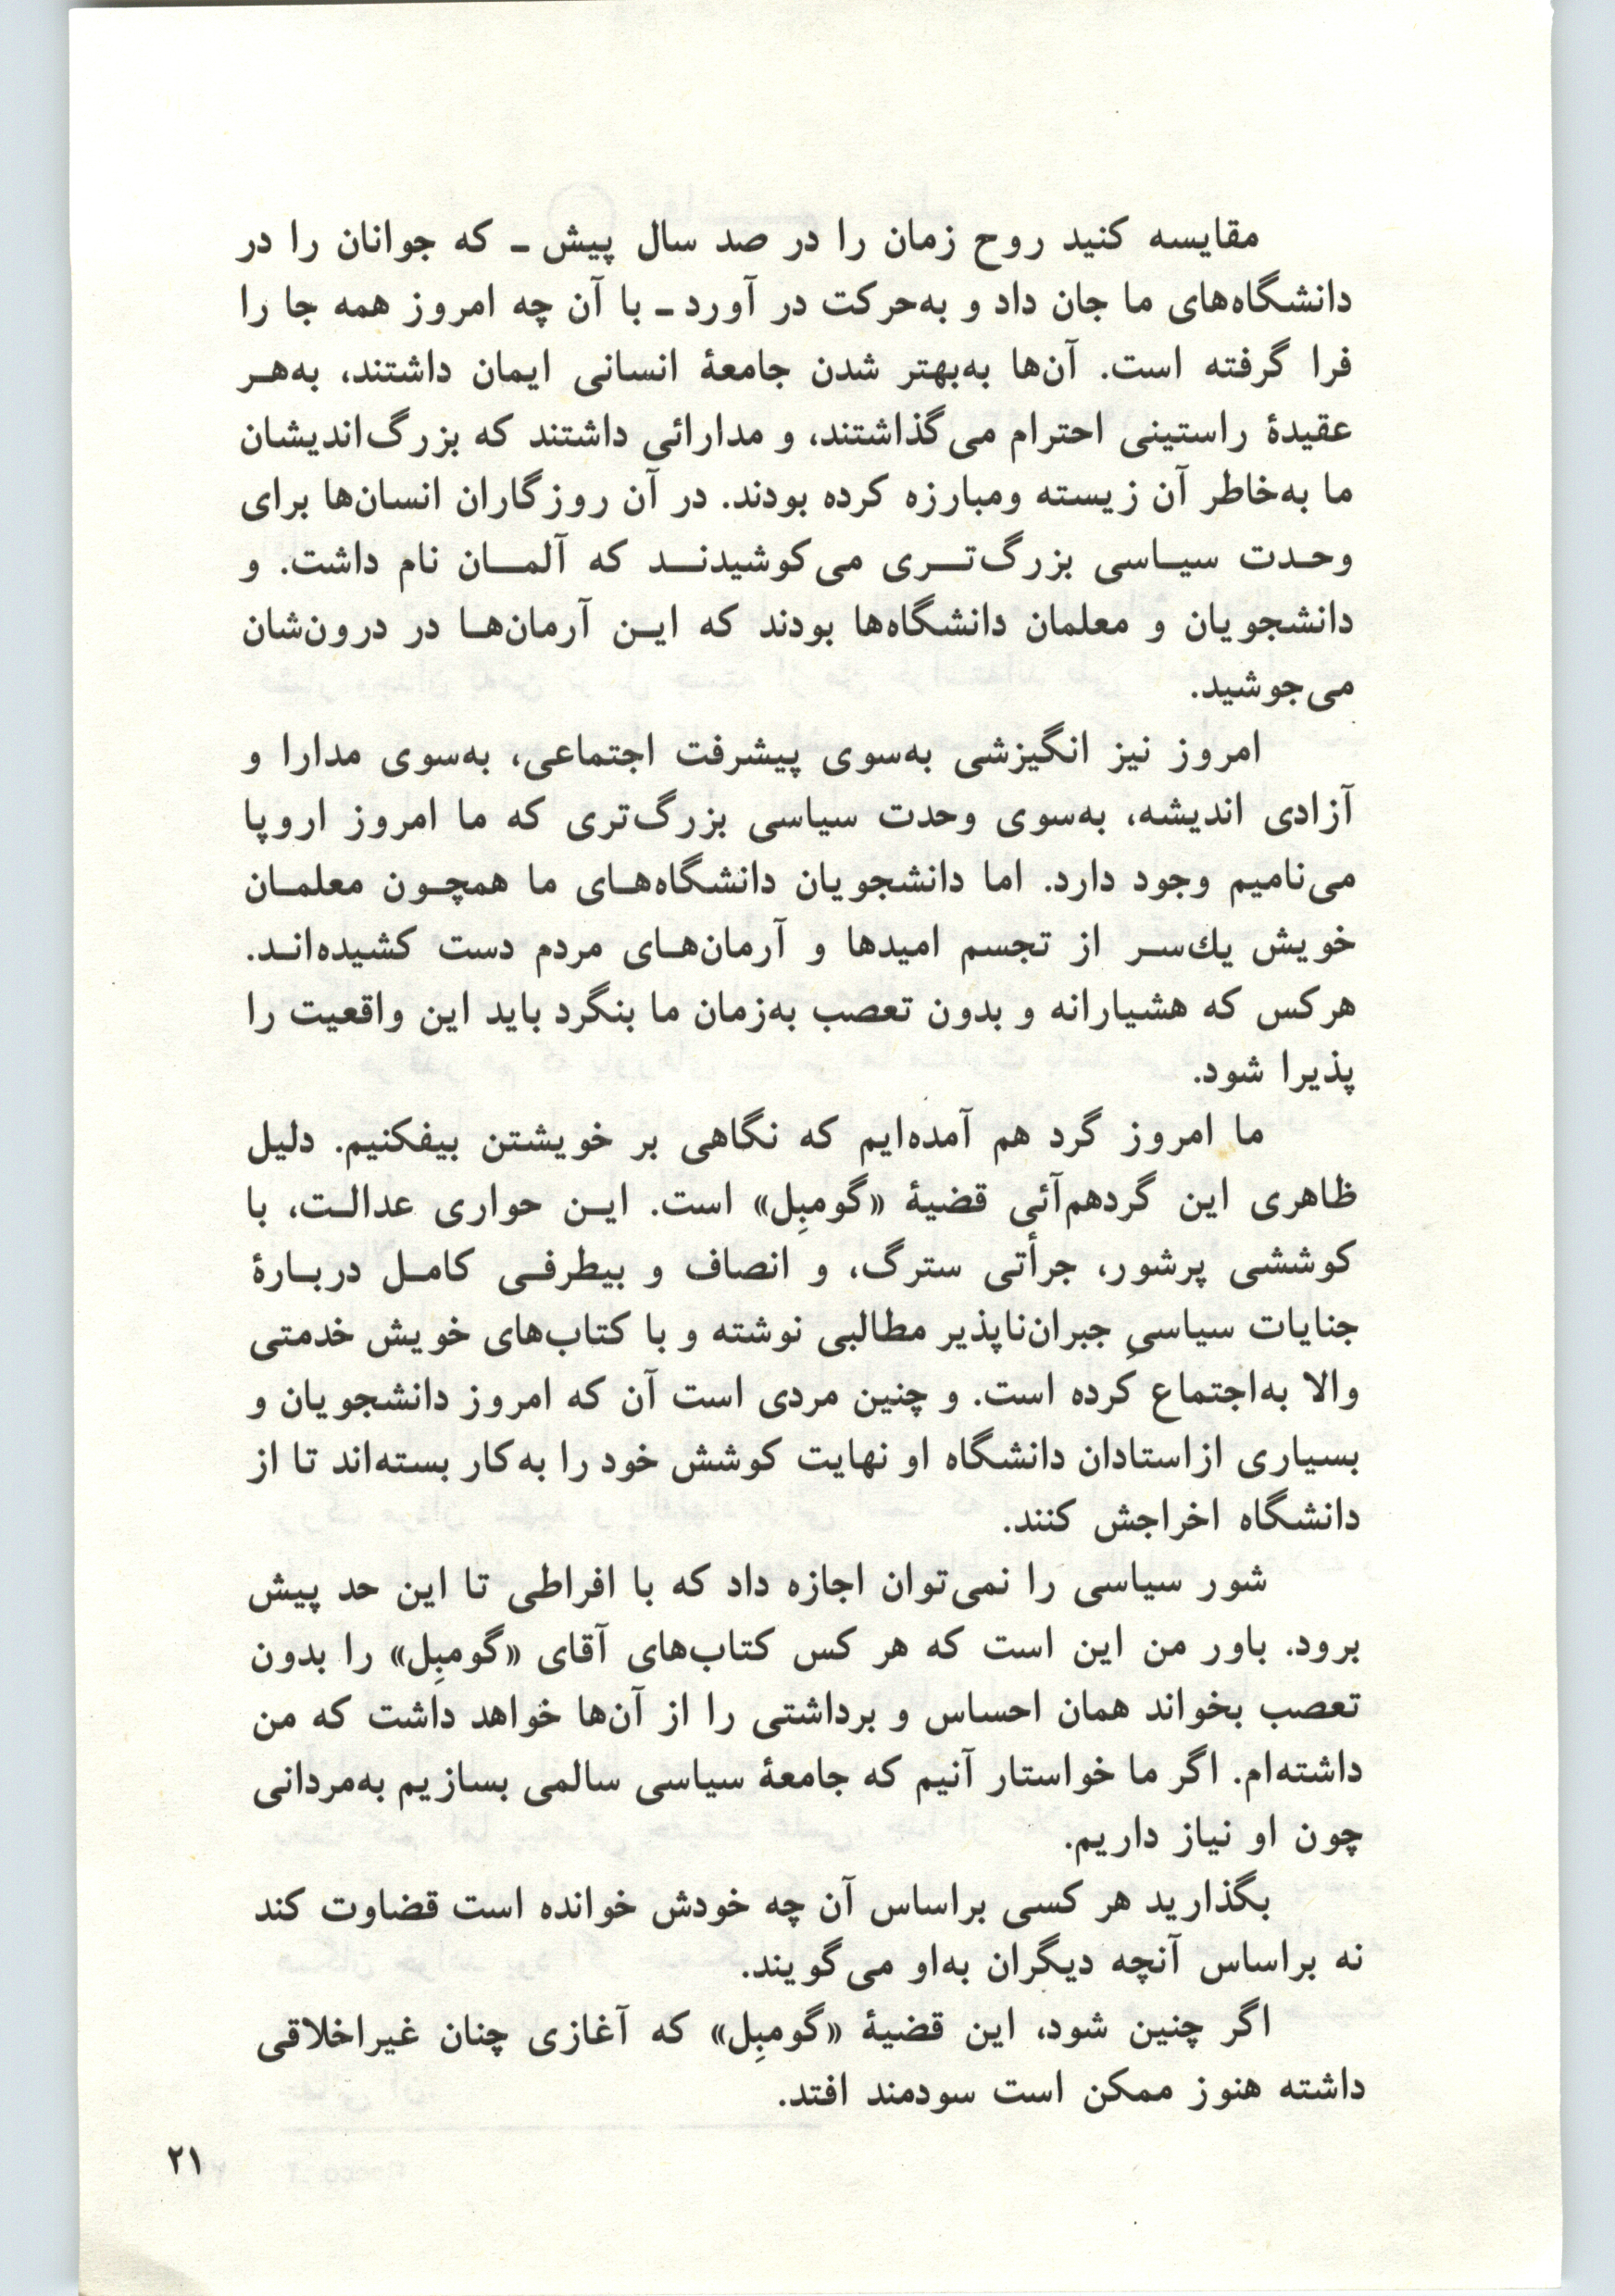 مقایسه کنید روح زمان را در صد سال پیش ـ که جوانان را در
دانشگاه‌های ما جان داد و به‌حرکت در آورد ـ با آن چه امروز همه جا را
فرا گرفته است. آن‌ها به‌بهتر شدن جامعهٔ انسانی ایمان داشتند، به‌هـر
عقیدهٔ راستینی احترام می‌گذاشتند، و مدارائی داشتند که بزرگ‌اندیشان
ما به‌خاطر آن زیسته ومبارزه کرده بودند. در آن روزگاران انسان‌ها برای
وحـدت سیـاسی بزرگ‌تـــری می‌کوشیدنـــد که آلمـــان نام داشت. و
دانشجویان و معلمان دانشگاه‌ها بودند که ایـن آرمان‌هـا در درون‌شان
می‌جوشید.
امروز نیز انگیزشی به‌سوی پیشرفت اجتماعی، به‌سوی مدارا و
آزادی اندیشه، به‌سوی وحدت سیاسی بزرگ‌تری که ما امروز اروپا
می‌نامیم وجود دارد. اما دانشجویان دانشگاه‌هـای ما همچـون معلمـان
خویش یك‌سـر از تجسم امیدها و آرمان‌هـای مردم دست کشیده‌انـد.
هرکس که هشیارانه و بدون تعصب به‌زمان ما بنگرد باید این واقعیت را
پذیرا شود.
ما امروز گرد هم آمده‌ایم که نگاهی بر خویشتن بیفکنیم. دلیل
ظاهری این گردهم‌آئی قضیهٔ «گومبِل» است. ایـن حواری عدالـت، با
کوششی پرشور، جرأتی سترگ، و انصاف و بیطرفـی کامـل دربـارهٔ
جنایات سیاسیِ جبران‌ناپذیر مطالبی نوشته و با کتاب‌های خویش خدمتی
والا به‌اجتماع کرده است. و چنین مردی است آن که امروز دانشجویان و
بسیاری ازاستادان دانشگاه او نهایت کوشش خود را به‌کار بسته‌اند تا از
دانشگاه اخراجش کنند.
شور سیاسی را نمی‌توان اجازه داد که با افراطی تا این حد پیش
برود. باور من این است که هر کس کتاب‌های آقای «گومبِل» را بدون
تعصب بخواند همان احساس و برداشتی را از آن‌ها خواهد داشت که من
داشته‌ام. اگر ما خواستار آنیم که جامعهٔ سیاسی سالمی بسازیم به‌مردانی
چون او نیاز داریم.
بگذارید هر کسی براساس آن چه خودش خوانده است قضاوت کند
نه براساس آنچه دیگران به‌او می‌گویند.
اگر چنین شود، این قضیهٔ «گومبِل» که آغازی چنان غیراخلاقی
داشته هنوز ممکن است سودمند افتد.
۲۱